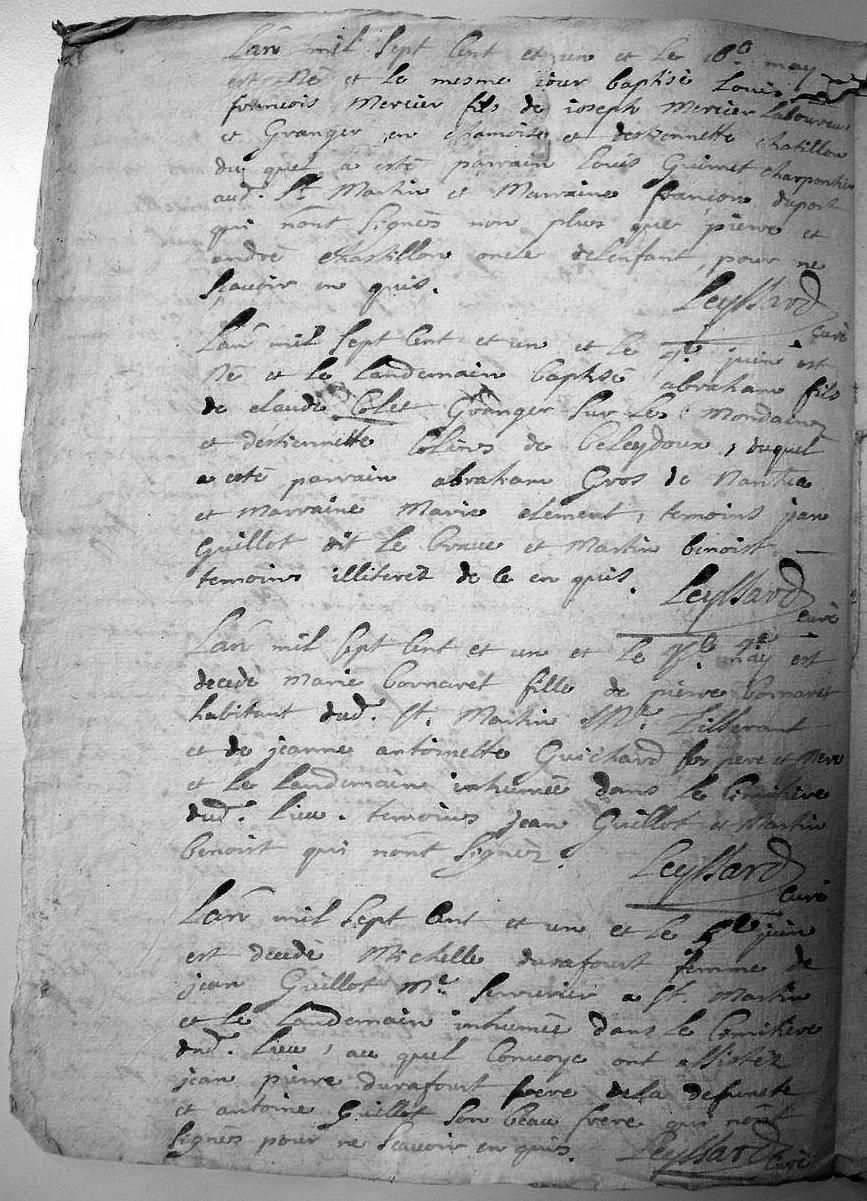 Lan mil sept cent et un et le 18e may
est né et le mesme jour baptisé Louis
francois Mercier fils de joseph Mercier Laboureur
et Granger en chamoise et destiennette chatillon
du quel a esté parrain Louis Guinet charpentier
aud. St Martin et Marraine francoise duport
qui nont signés non plus que pierre et
andré Chastillon oncle delenfant, pour ne
scavoir en quis. Leyssard curé
Lan mil sept cent et un et le juin est
né et le landemain baptisé abraham fils
de claude Colet Granger sur les Mondains
et destiennette Colens de beleydoux, duquel
a esté parrain abraham Gros de Nantua
et Marraine Marie clement, temoins jean
Guillot dit le brave et Martin benoist
temoins illiteréz de ce en quis. Leyssard curé
Lan mil sept cent et un et le may est
decedé Marie bornaret fille de pierre bornaret
habitant dud. St. Martin Me Tisserant
et de jeanne antoinette Guichard ses pere et Mere
et le landemain inhumée dans le Cimitiere
dud. lieu. temoins jean Guillot et Martin
benoist qui nont signéz. Leyssard curé
Lan mil sept cent et un et le juin
est decedé Michelle durafourt femme de
jean Guillot Me. serrurier a St. Martin
et le landemain inhumée dans le Cemitiere
dud. lieu, au quel Convoye ont assistéz
jean pierre durafourt frere dela defuncte
et antoine Guillot son beau frere qui nont
signés pour ne scavoir en quis. Leyssard curé